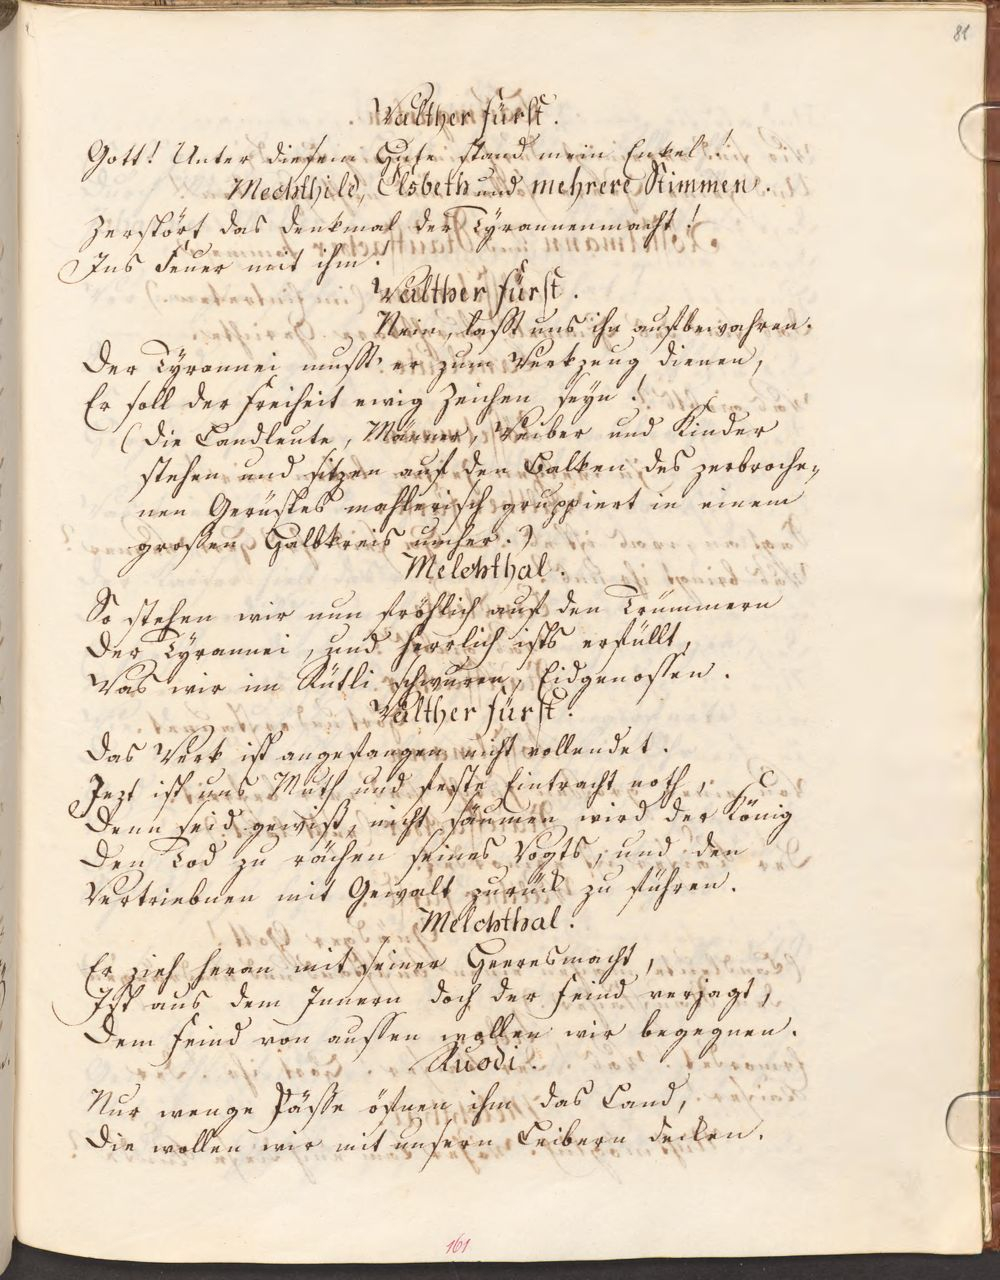 81
Walther Fürst.
Gott! Unter diesem Hute stand mein Enkel!
Mechthild, Elsbeth und mehrere Stimmen.
Zerstört das Denkmal der Tyrannenmacht!
Ins Feuer mit ihm!
Walther Fürst.
Nein, lasst uns ihn aufbewahren.
Der Tyrannei musst' er zum Werkzeug dienen,
Er soll der Freiheit ewig Zeichen seyn!
(Die Landleute, Männer, Weiber und Kinder
stehen und sitzen auf den Balken des zerbroche-
nen Gerüstes mahlerisch gruppiert in einem
grossen Halbkreis umher.)
Melchthal.
So stehen wir nun fröhlich auf den Trümmern
Der Tyrannei, und herrlich ists erfüllt,
Was wir im Rütli schwuren, Eidgenossen.
Walther Fürst.
Das Werk ist angefangen nicht vollendet.
Jezt ist uns Muth und feste Eintracht noth,
Denn seid gewiß, nicht säumen wird der König
Den Tod zu rächen seines Vogts, und den
Vertriebnen mit Gewalt zurück zu führen.
Melchthal.
Er zieh heran mit seiner Heeresmacht,
Ist aus dem Innern doch der Feind verjagt,
Dem Feind von aussen wollen wir begegnen.
Ruodi.
Nur wenge Pässe öfnen ihm das Land,
Die wollen wir mit unsern Leibern decken.
161